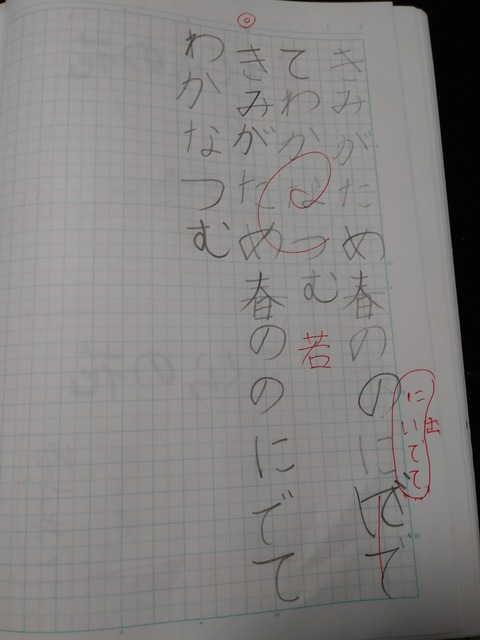 きみがため春ののにで
にいでて
出
てわかなつむ
若
きみがため春ののにでて
わかなつむ